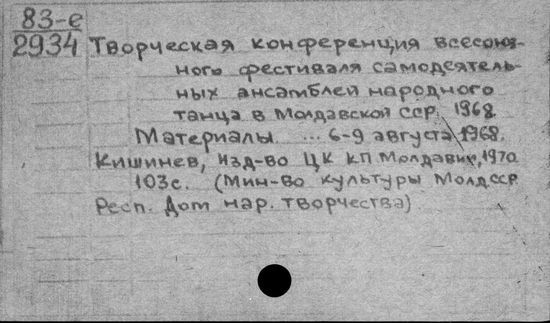 83-е
2934
Творческая конференция всесоюз-
ного фестиваля самодеятель-
ных ансамблей народного
танца в Молдавской ССР. 1968.
Материалы ... 6-9 августа 1968.
Кишинев, Изд-во ЦК КП Молдавии, 1970
103с. (Мин-во культуры Молд.ССР.
Респ. Дом нар. творчества)